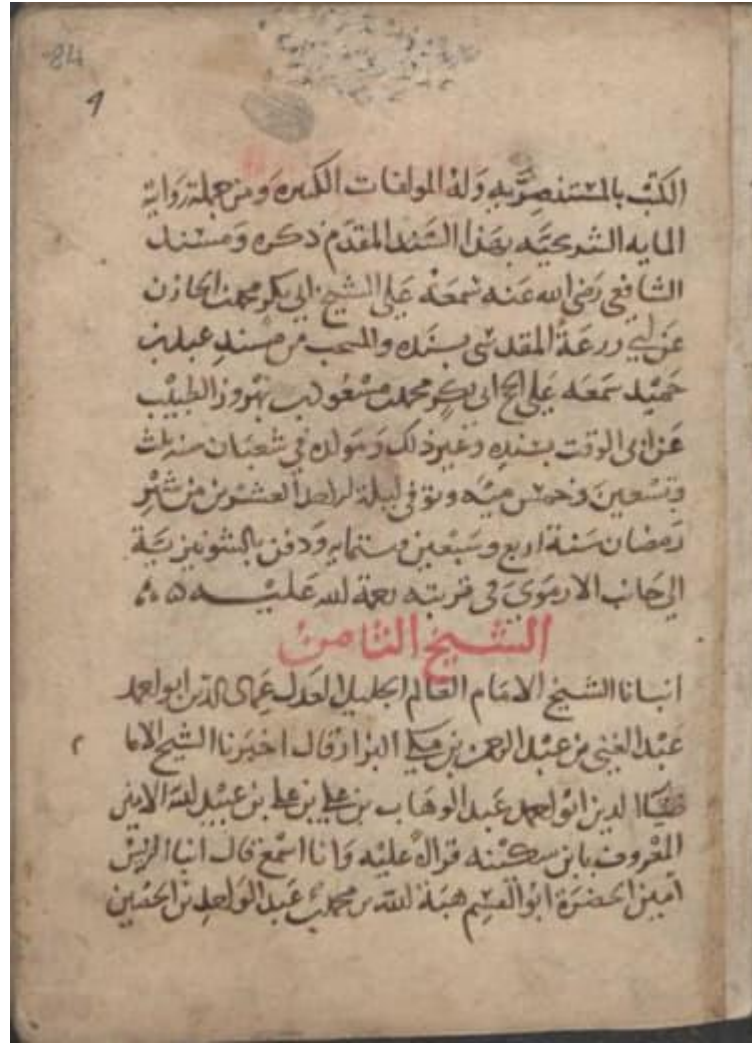 84
الكتب بالمستنصريه وله المولفات الكثيره ومن جملة رواية
المايه الشريحيه بهذا السند المقدم ذكره ومسند
الشافعي رضي الله عنه سمعه على الشيخ ابي بكر محمد بن الخازن
عن ابي زرعة المقدسي بسنده والمنتخب من مسند عبد بن
حميد سمعه على ابي بكر محمد بن مسعود بن بهروز الطبيب
عن ابي الوقت بسنده وغير ذلك ومولده في شعبان سنه ثلث
وتسعين وخمس ميه وتوفي ليلة الحادي والعشرين من شهر
رمضان سنة اربع وسبعين وستمايه ودفن بالشونيزية
الى جانب الارموي في قربته رحمة الله عليه
الشيخ الثامن
انبانا الشيخ الامام العالم الجليل العدل عماد الدين ابو احمد
عبد الغني بن عبد الرحمن بن مكي البزاز قال اخبرنا الشيخ الاما
ضيا الدين ابو احمد عبد الوهاب بن علي بن علي بن عبيد الله الامين
المعروف بابن سكينه قراة عليه وانا اسمع قال انبا الرئيس
امين الحضرة ابو القسم هبة الله بن محمد بن عبد الواحد بن الحصين